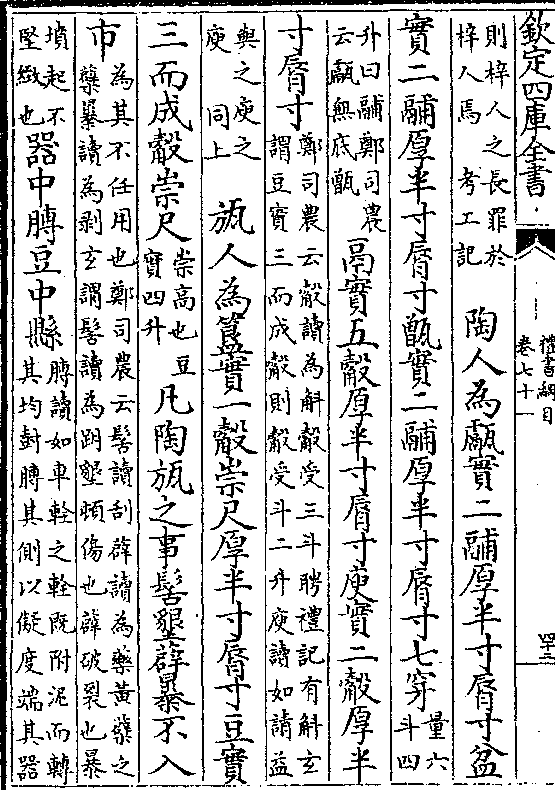 欽定四庫全書
禮書綱目
卷七十一
則梓人之長罪於
梓人焉 考工記
陶人為甗實二鬴厚半寸脣寸盆
實二鬴厚半寸脣寸甑實二鬴厚半寸脣寸七穿
量六
斗四
升曰鬴鄭司農
云甗無底甑
鬲實五觳厚半寸脣寸庾實二觳厚半
寸脣寸
鄭司農云觳讀為斛觳受三斗聘禮記有斛玄
謂豆實三而成觳則觳受斗二升庾讀如請益
與之庾之
庾 同上
瓬人為簋實一觳崇尺厚半寸脣寸豆實
三而成觳崇尺
崇高也豆
實四升
凡陶瓬之事髺墾薜暴不入
市
為其不任用也鄭司農云髺讀刮薜讀為藥黃蘗之
蘗暴讀為剥玄謂髺讀為跀墾頓傷也薜破裂也暴
墳起不
堅緻也
器中膊豆中縣
膊讀如車輇之輇既附泥而轉
其均尌膊其側以儗度端其器